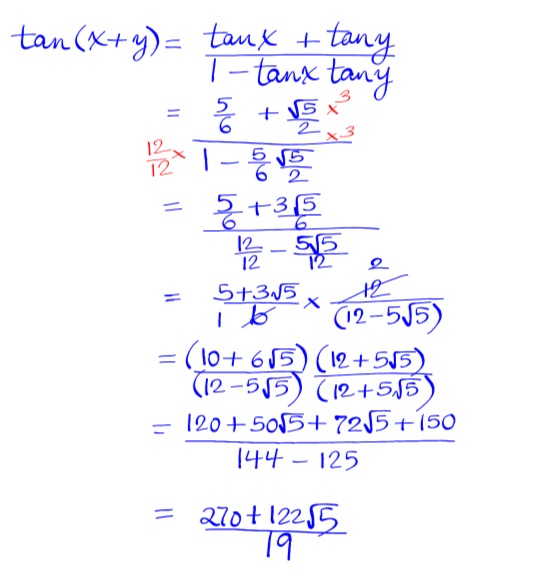 tan(x+y) = (tanx + tany)/(1 - tanx tany)
= (5/6 + √5/2 ×3 ×3)/(12/12 × 1 - 5/6 √5/2)
= (5/6 + 3√5/6)/(12/12 - 5√5/12)
= (5+3√5)/(1 6) × (2 12)/(12-5√5)
= (10+6√5)/(12-5√5) (12+5√5)/(12+5√5)
= (120+50√5+72√5+150)/(144-125)
= (270+122√5)/19